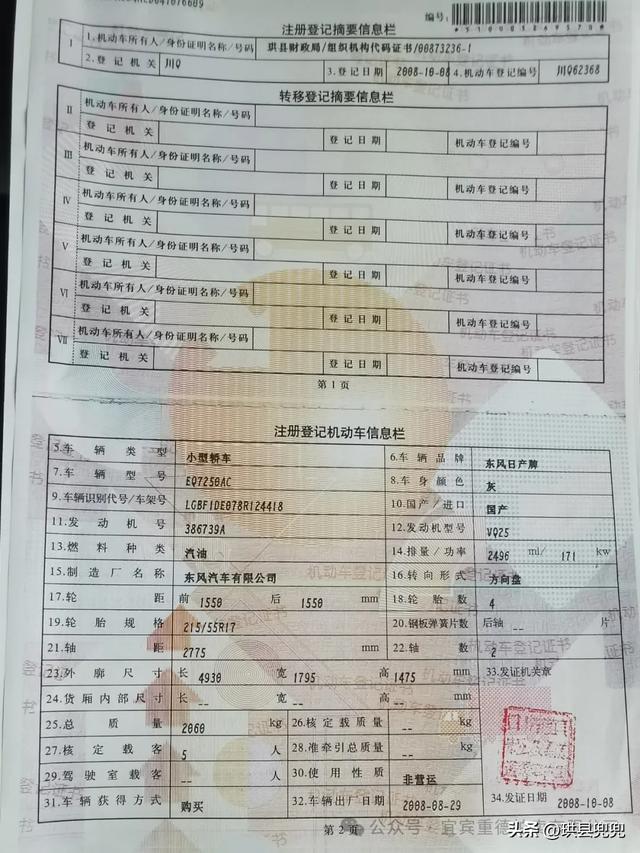 编号:
注册登记摘要信息栏
I 1.机动车所有人/身份证明名称/号码 珙县财政局/组织机构代码证书/00873236-1
2.登记机关 川Q 3.登记日期 2008-10-08 4.机动车登记编号 川Q62368
转移登记摘要信息栏
II 机动车所有人/身份证明名称/号码
登记机关 登记日期 机动车登记编号
III 机动车所有人/身份证明名称/号码
登记机关 登记日期 机动车登记编号
IV 机动车所有人/身份证明名称/号码
登记机关 登记日期 机动车登记编号
V 机动车所有人/身份证明名称/号码
登记机关 登记日期 机动车登记编号
VI 机动车所有人/身份证明名称/号码
登记机关 登记日期 机动车登记编号
VII 机动车所有人/身份证明名称/号码
登记机关 登记日期 机动车登记编号
第1页
注册登记机动车信息栏
5.车辆类型 小型轿车 6.车辆品牌 东风日产牌
7.车辆型号 EQ7250AC 8.车身颜色 灰
9.车辆识别代号/车架号 LGBF1DE078R124418 10.国产/进口 国产
11.发动机号 386739A 12.发动机型号 VQ25
13.燃料种类 汽油 14.排量/功率 2496 ml/ 171 kw
15.制造厂名称 东风汽车有限公司 16.转向形式 方向盘
17.轮距 前 1550 后 1550 mm 18.轮胎数 4
19.轮胎规格 215/55R17 20.钢板弹簧片数 后轴 -- 片
21.轴距 2775 mm 22.轴数 2
23.外廓尺寸 长 4930 宽 1795 高 1475 mm 33.发证机关章
24.货厢内部尺寸 长 -- 宽 -- 高 -- mm
25.总质量 2060 kg 26.核定载质量 -- kg
27.核定载客 5 人 28.准牵引总质量 -- kg
29.驾驶室载客 -- 人 30.使用性质 非营运
31.车辆获得方式 购买 32.车辆出厂日期 2008-08-29 34.发证日期 2008-10-08
第2页
公众号·宜宾重德
头条 @珙县兜兜